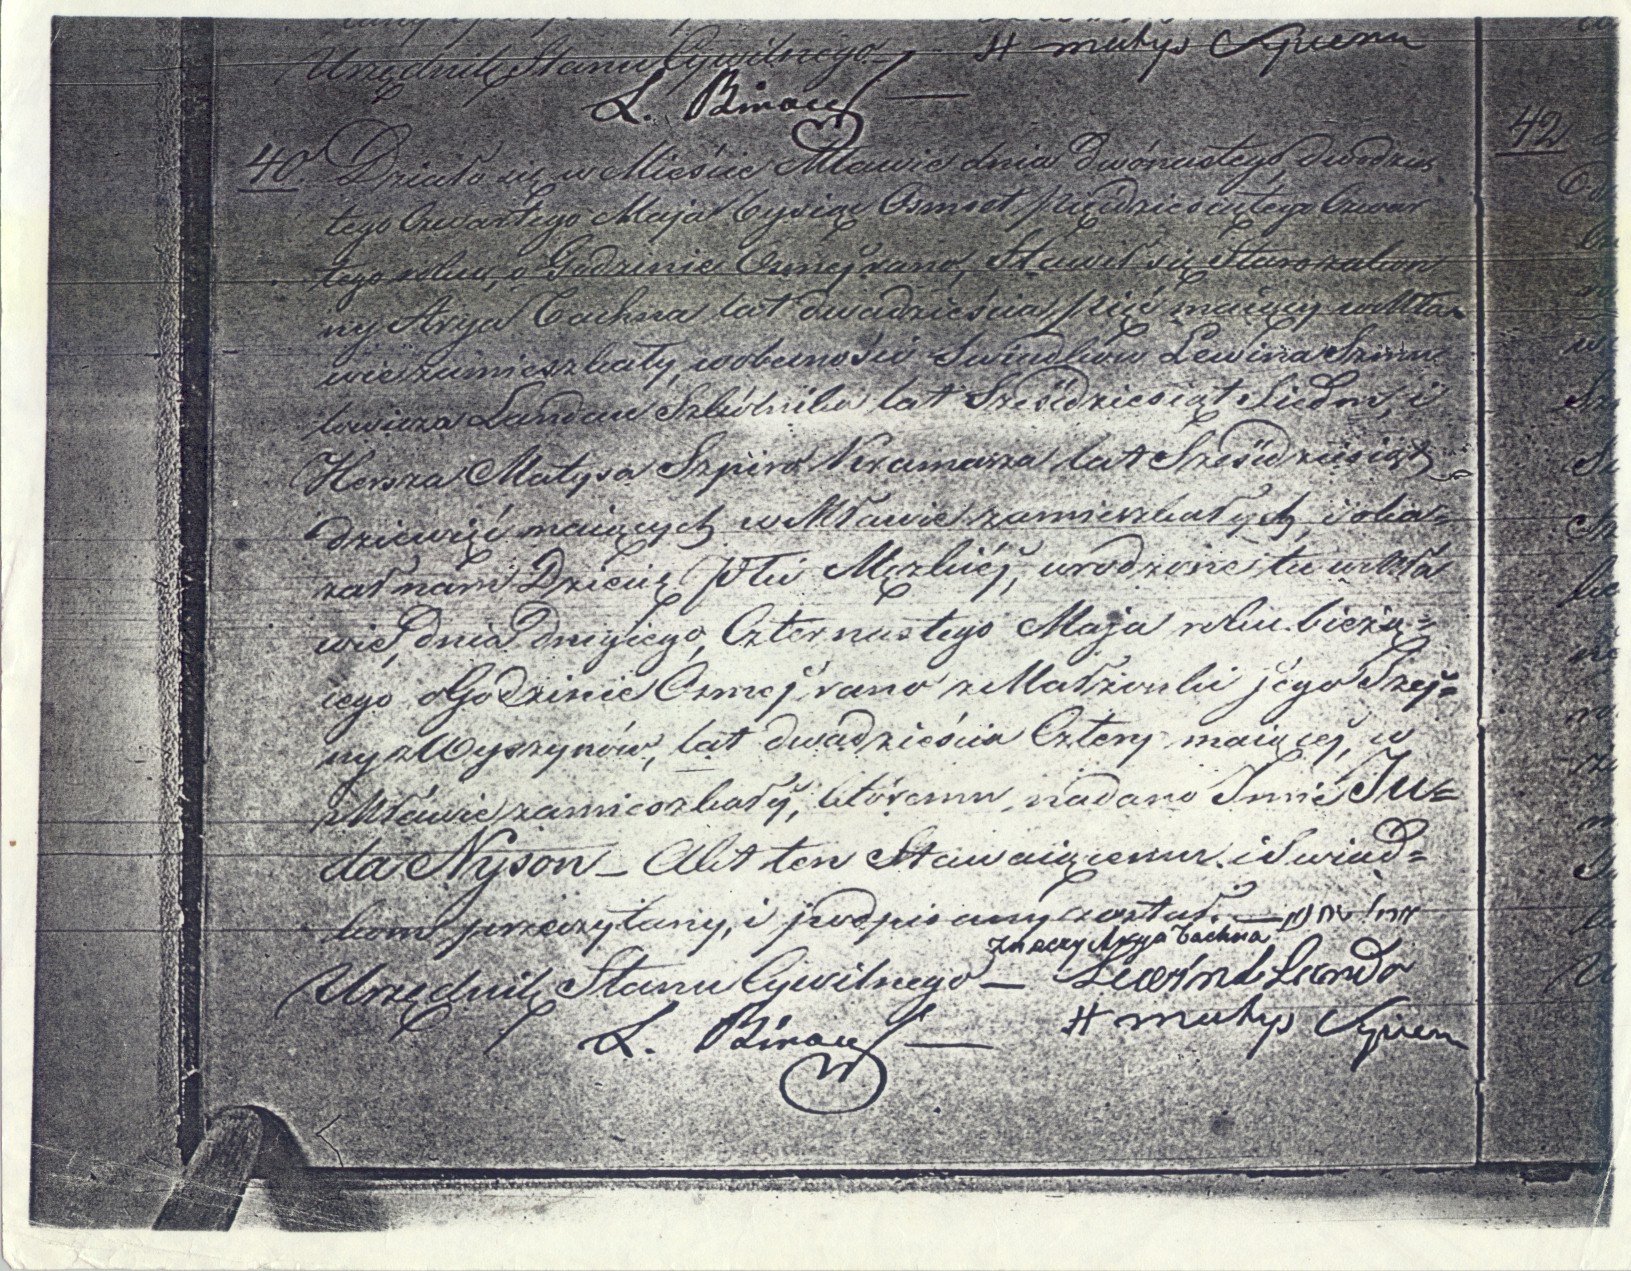 Urzędnik Stanu Cywilnego
H matys Szpiero
L. Biraŭ
40. Działo się w Mieście Mławie dnia Dwónastego, dwudzies
42
tego Czwartego Maja tysiąc Osmset pięćdziesiątego Czwar
tego roku, o Godzinie Osmej rano, Stawił się Starozakon
ny Arya Tachna lat dwadzieścia pięć maiący w Mła-
wie zamieszkały, w obecności Swiadków Lewina Szmu
lowicza Landau Szkólnika lat Sześćdziesiąt Siedm, i
Hersza Matysa Szpiro Kramarza lat Sześćdziesiąt
dziewięć maiących w Mławie zamieszkałych, i oka=
zał nam Dziecię płci Męzkiéj, urodzone tu w Mła
wie, dnia drugiego, Czternastego Maja roku bieżą=
cego o Godzinie Osmej rano z Małżonki jégo Szej=
ny z Wyszynów, lat dwadzieścia Cztery maiącej, w
Mławie zamieszkałej, którému nadano Imié Ju=
da Nyson – Akt ten Stawaiącemu i Swiad=
kom przeczytany, i podpisany został. —
znaczy Arya Tachna
Urzędnik Stanu Cywilnego — Lewin Lando
L. Biraŭ
H matys Szpiero